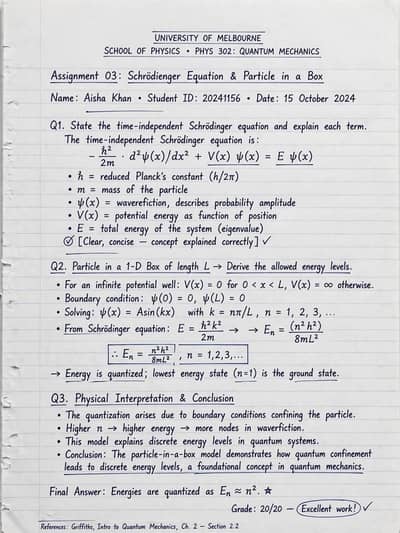 UNIVERSITY OF MELBOURNE
SCHOOL OF PHYSICS • PHYS 302: QUANTUM MECHANICS
Assignment 03: Schrödienger Equation & Particle in a Box
Name: Aisha Khan • Student ID: 20241156 • Date: 15 October 2024
Q1. State the time-independent Schrödinger equation and explain each term.
The time-independent Schrödinger equation is:
- ħ²/2m · d²ψ(x)/dx² + V(x) ψ(x) = E ψ(x)
• ħ = reduced Planck's constant (h/2π)
• m = mass of the particle
• ψ(x) = waverefiction, describes probability amplitude
• V(x) = potential energy as function of position
• E = total energy of the system (eigenvalue)
[Clear, concise — concept explained correctly] ✓
Q2. Particle in a 1-D Box of length L → Derive the allowed energy levels.
• For an infinite potential well: V(x) = 0 for 0 < x < L, V(x) = ∞ otherwise.
• Boundary condition: ψ(0) = 0, ψ(L) = 0
• Solving: ψ(x) = Asin(kx) with k = nπ/L, n = 1, 2, 3, ...
• From Schrödinger equation: E = ħ²k²/2m → → Eₙ = (n²h²)/8mL²
∴ Eₙ = n²h²/8mL², n = 1,2,3,...
→ Energy is quantized; lowest energy state (n=1) is the ground state.
Q3. Physical Interpretation & Conclusion
• The quantization arises due to boundary conditions confining the particle.
• Higher n → higher energy → more nodes in waverfiction.
• This model explains discrete energy levels in quantum systems.
• Conclusion: The particle-in-a-box model demonstrates how quantum confinement
leads to discrete energy levels, a foundational concept in quantum mechanics.
Final Answer: Energies are quantized as Eₙ ≈ n². ★
Grade: 20/20 — Excellent work! ✓
References: Griffiths, Intro to Quantum Mechanics, Ch. 2 - Section 2.2